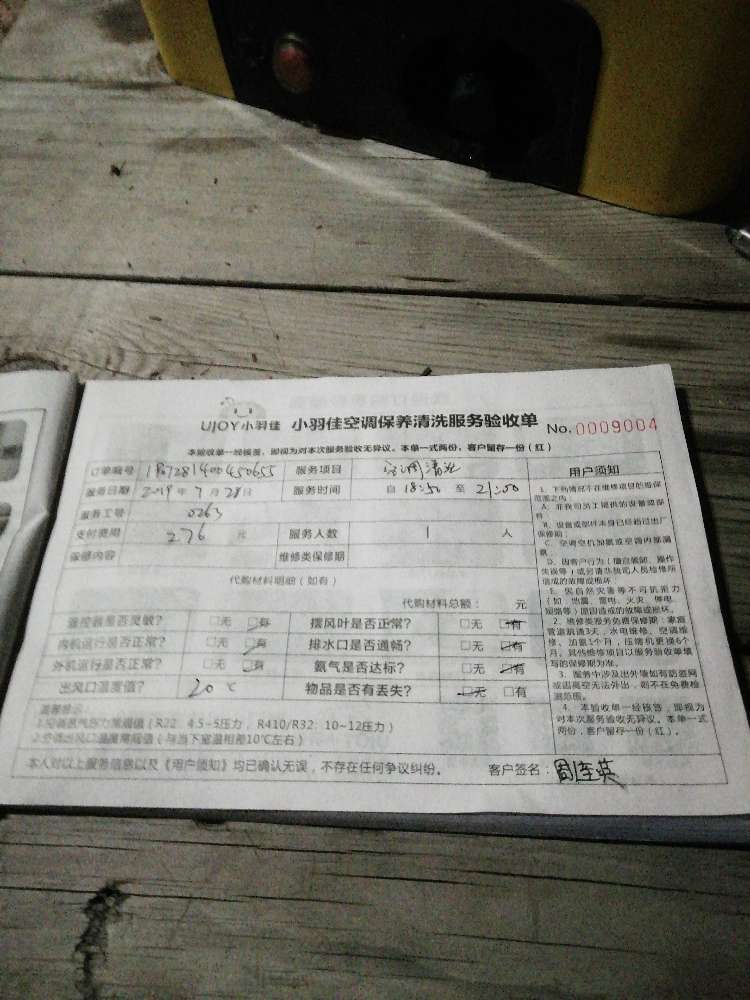 UJOY小羽佳 小羽佳空调保养清洗服务验收单 No.0009004
本验收单一经核签，即视为对本次服务验收无异议。本单一式两份，客户留存一份（红）
订单编号 服务项目 空调清洗
服务日期 2019年7月28日 服务时间 自18:50至21:00
服务工号 0263
支付费用 276 元 服务人数 1 人
维修内容 维修类保修期
代购材料明细（如有）
代购材料总额： 元
遥控器是否灵敏？ □无 □有 摆风叶是否正常？ □无 □有
内机运行是否正常？ □无 □有 排水口是否通畅？ □无 □有
外机运行是否正常？ □无 □有 氨气是否达标？ □无 □有
出风口温度值？ 20℃ 物品是否有丢失？ □无 □有
温馨提示：
（R22：4.5~5压力，R410/R32：10~12压力）
（与当下室温相差10℃左右）
本人对以上服务信息以及《用户须知》均已确认无误，不存在任何争议纠纷。 客户签名：
用户须知
1、下列情况不在维修项目的质保
范围之内
A、非我司员工提供的设备或部
件
B、设备或部件本身已经超过出厂
保修期；
C、空调空机加氨或空调内部漏
D、因客户行为（擅自装卸、操作
失误等）或另请外
造成的故障或损坏
E、因自然灾害等不可抗力
（如：地震、雷电、火灾、停电、
短路等）原因造成的故障或损坏。
2、维修类服务免费保修期：家庭
管道疏通3天，水电维修、空调维
修、加氨1个月，压缩机更换6个
月，其他维修项目以服务验收单填
写的保修期为准。
3、服务中涉及出外墙如有防盗网
或因高空无法外出，则不在免费检
测范围。
4、本验收单一经核签，即视为
对本次服务验收无异议。本单一式
两份，客户留存一份（红）。